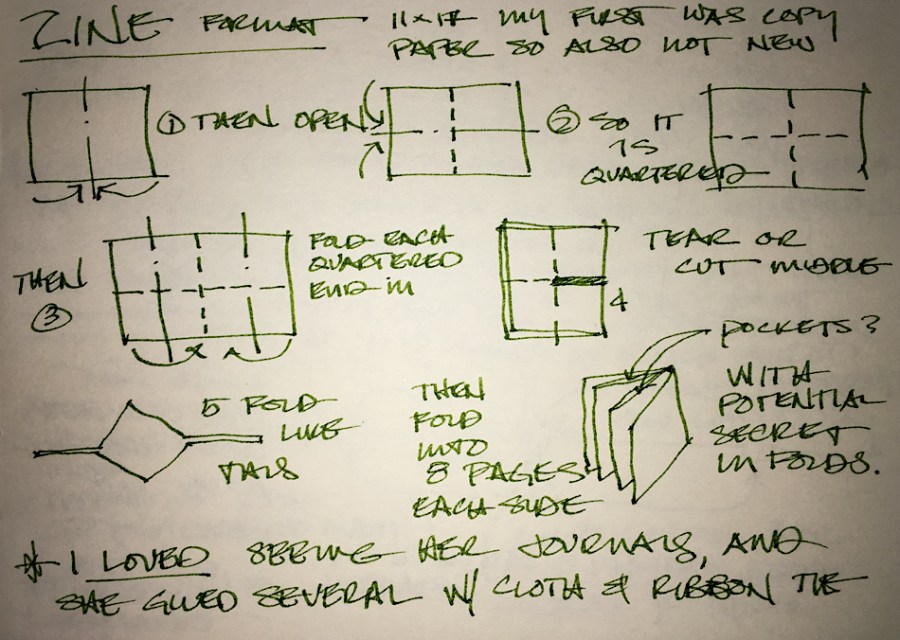 ZINE FORMAT — 11x17 MY FIRST WAS COPY
PAPER SO ALSO NOT NEW
① THEN OPEN
② SO IT
IS
QUARTERED
THEN
③
FOLD EACH
QUARTERED
END IN
4
TEAR OR
CUT MIDDLE
5 FOLD
LIKE
THIS
THEN
FOLD
INTO
8 PAGES
EACH SIDE
POCKETS?
WITH
POTENTIAL
SECRET
IN FOLDS.
* I LOVED SEEING HER JOURNALS, AND
SHE GLUED SEVERAL W/ CLOTH & RIBBON TIE